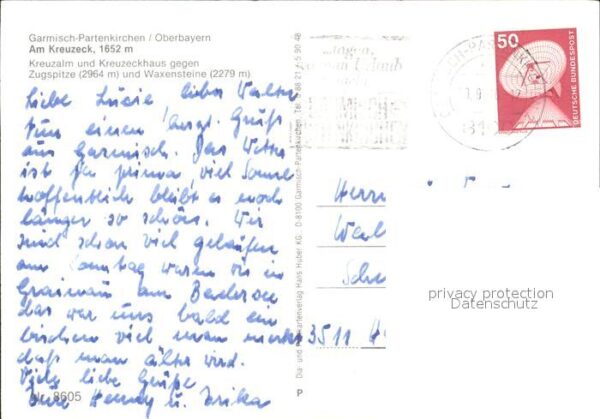 Garmisch-Partenkirchen / Oberbayern
Am Kreuzeck, 1652 m
Kreuzalm und Kreuzeckhaus gegen
Zugspitze (2964 m) und Waxensteine (2279 m)
Liebe Lucie, lieber Walter
Nun einen herzl. Gruß
aus Garmisch. Das Wetter
ist ja prima, viel Sonne
hoffentlich bleibt es noch
länger so schön. Wir
sind schon viel gelaufen
am Sonntag waren wir in
Grainau am Badersee
das war uns bald ein
bischen viel man merkt
daß man älter wird.
Viele liebe Grüße
Eure Henny u. Erika
8605
Dia- und Postkartenverlag Hans Huber KG, D-8100 Garmisch-Partenkirchen, Tel.
P
50
DEUTSCHE BUNDESPOST
Herrn
3511
privacy protection
Datenschutz